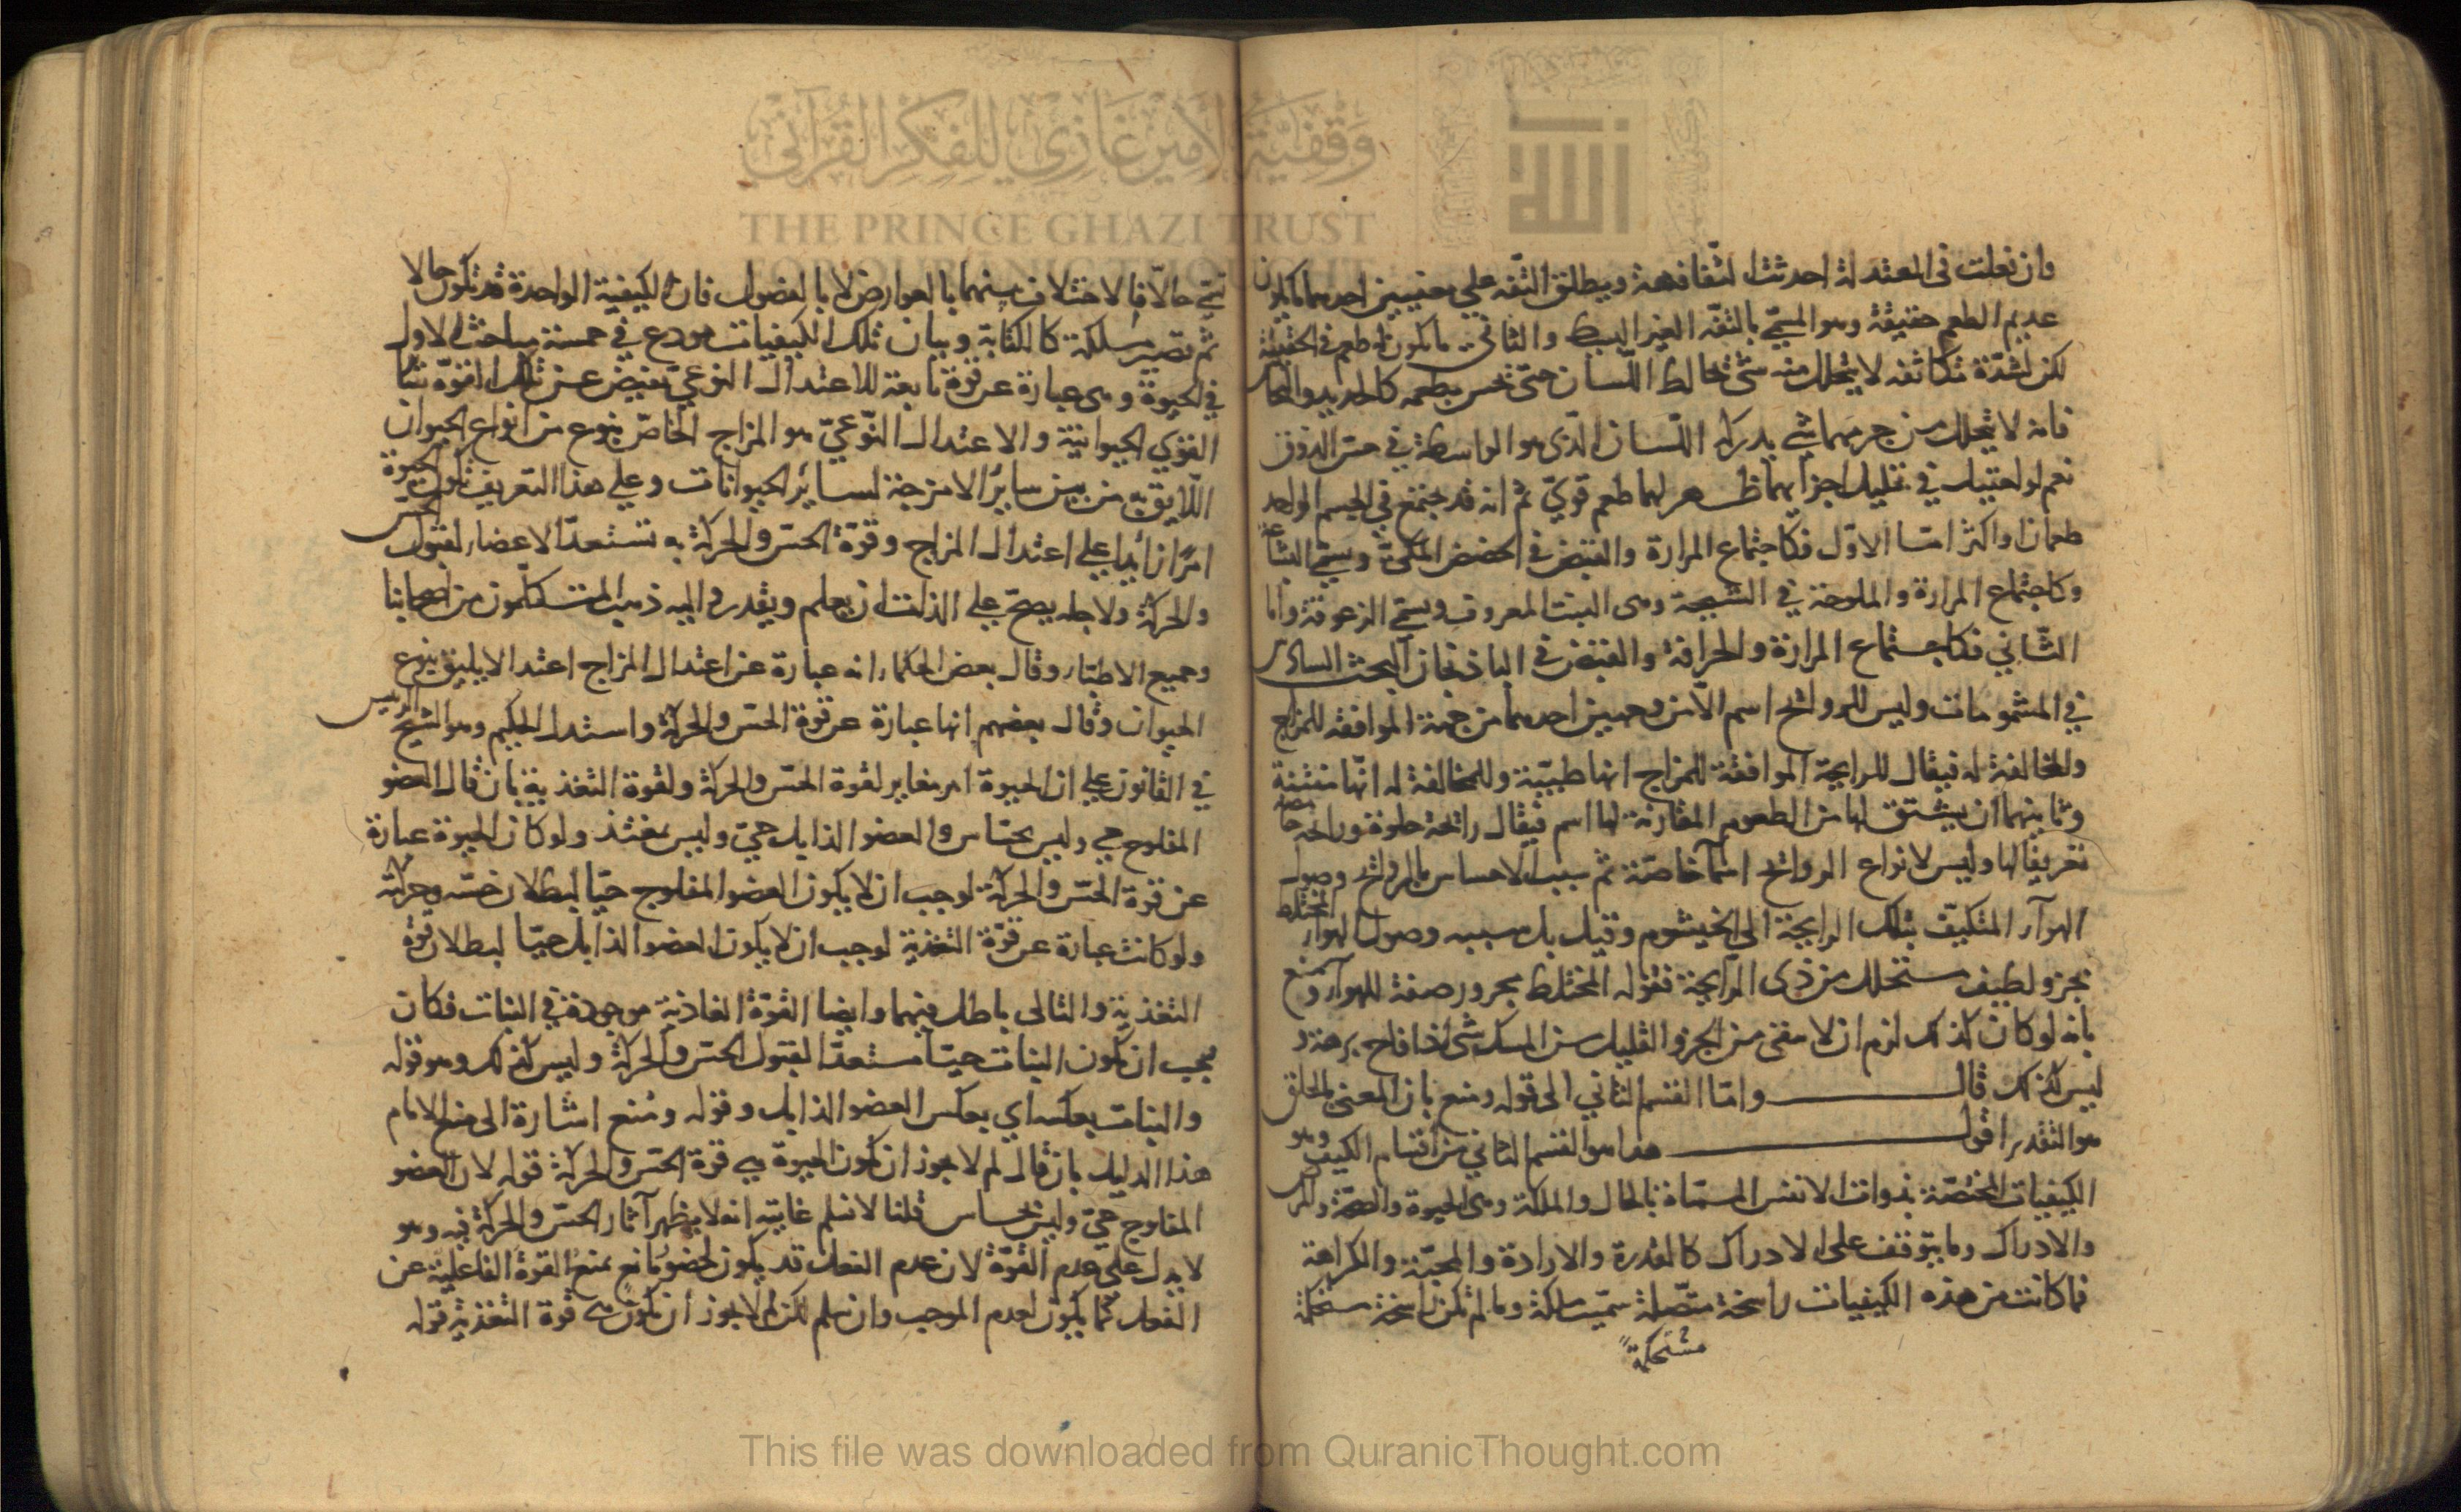 وان فعلت فى المعتدلة احدثت التفاهة ويطلق التفه على معنيين احدهما ما يكون
عديم الطعم حقيقة وهو المسمى بالتفه الغير البسيط والثانى ما يكون له طعم فى الحقيقة
لكن لشدّة تكاثفه لا يتحلل منه شئ يخالط اللّسان حتى يحس بطعمه كالحديد والنحاس
فانه لا يتحلل من جرمهما شئ يدركه اللّسان الذى هو الواسطة فى حسّ الذوق
نعم لو احتيل فى تحليل اجزائهما ظهر لهما طعم قوىّ ثم انه قد يجتمع فى الجسم الواحد
طعمان او اكثر امّا الاوّل فكاجتماع المرارة والقبض فى الحضض المكىّ ويسمى البشاعة
وكاجتماع المرارة والملوحة فى الشيحة وهى النبت المعروف ويسمى الزعوقة وامّا
الثّانى فكاجتماع المرارة والحرافة والقبض فى الباذنجان البحث السادس
فى المشمومات وليس للروائح اسم الّا من وجهين احدهما من جهة الموافقة للمزاج
والمخالفة له فيقال للرايحة الموافقة للمزاج انها طيبّة وللمخالفة له انّها منتنة
وثانيهما ان يشتق لها من الطعوم المقارنة لها اسم فيقال رائحة حلوة ورائحة حامضة
تعريفا لها وليس لانواع الروائح اسما خاصّة ثم سبب الاحساس بالروائح وصول
الهوآء المتكيّف بتلك الرايحة الى الخيشوم وقيل بل سببه وصول الهوآء المختلط
بجزو لطيف متحلل من ذى الرّايحة فقوله المختلط مجرور صفة للهوآء ومنع
بانه لو كان كذلك لزم ان لا مفنى من الجزو القليل من المسك شئ اذا فاح برهة و
ليس كذلك قال وامّا القسم الثانى الى قوله ومنع بان المعنى بالخلق
هو التقدير اقول هذا هو القسم الثانى من اقسام الكيف وهو
الكيفيات المختصّة بذوات الانفس المسمّاة بالحال والملكة وهى الحيوة والصحّة والمرض
والادراك وما يتوقف على الادراك كالقدرة والارادة والمحبّة والكراهة
فما كانت من هذه الكيفيات راسخة متّصلة سمّيت ملكة وما لم تكن راسخة مستحكمة
مستحكمة
تسمى حالّا فالاختلاف بينهما بالعوارض لا بالفصول فان الكيفية الواحدة قد تكون حالا
ثم تصير ملكة كالكتابة وبيان تلك الكيفيات مودع فى خمسة مباحث الاول
فى الحيوة وهى عبارة عن قوة تابعة للاعتدال النوعىّ تفيض عن تلك القوّة سائر
القوى الحيوانية والاعتدال النّوعىّ هو المزاج الخاصّ بنوع من انواع الحيوان
اللّايق به من بين ساير الامزجة لساير الحيوانات وعلى هذا التعريف تكون الحيوة
امرًا زائدا على اعتدال المزاج وقوّة الحسّ والحركة به تستعدّ الاعضاء لقبول الحسّ
والحركة ولاجله يصحّ على الذات ان يعلم ويقدر واليه ذهب المتكلّمون من اصحابنا
وجميع الاطبّاء وقال بعض الحكماء انه عبارة عن اعتدال المزاج اعتدالا يليق بنوع
الحيوان وقال بعضهم انها عبارة عن قوة الحسّ والحركة واستدل الحكيم وهو الشيخ الرئيس
فى القانون على ان الحيوة امر مغاير لقوة الحسّ والحركة ولقوة التغذية بان قال العضو
المفلوج حى وليس بحسّاس والعضو الذابل حىّ وليس بمغتذ ولو كان الحيوة عبارة
عن قوة الحسّ والحركة لوجب ان لا يكون العضو المفلوج حيّا لبطلان حسّه وحركته
ولو كانت عبارة عن قوّة التغذية لوجب ان لا يكون العضو الذابل حيّا لبطلان قوّة
التغذية والتالى باطل فيهما وايضا القوّة الغاذية موجودة فى النبات فكان
يجب ان يكون النبات حيّا مستعدّا لقبول الحسّ والحركة وليس كذلك وهو قوله
والنبات بعكسه اى بعكس العضو الذابل وقوله ومُنع اشارة الى منع الامام
هذا الدليل بان قال لم لا يجوز ان تكون الحيوة هى قوة الحسّ والحركة قوله لان العضو
المفلوج حىّ وليس بحساس قلنا لا نسلم غايته انه لا يظهر آثار الحسّ والحركة فيه وهو
لا يدل على عدم القوّة لان عدم الفعل قد يكون لحضور مانع يمنع القوة الفاعلية عن
الفعل كما يكون لعدم الموجب وان سلم لكن لم لا يجوز ان تكون هى قوة التغذية قوله
وقفية الأمير غازي للفكر القرآني
THE PRINCE GHAZI TRUST
FOR QURANIC THOUGHT
This file was downloaded from QuranicThought.com